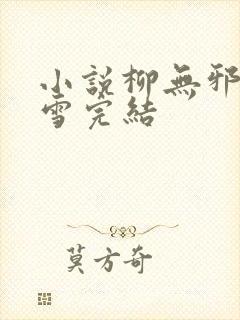 小說柳無邪
雪完結
莫方奇